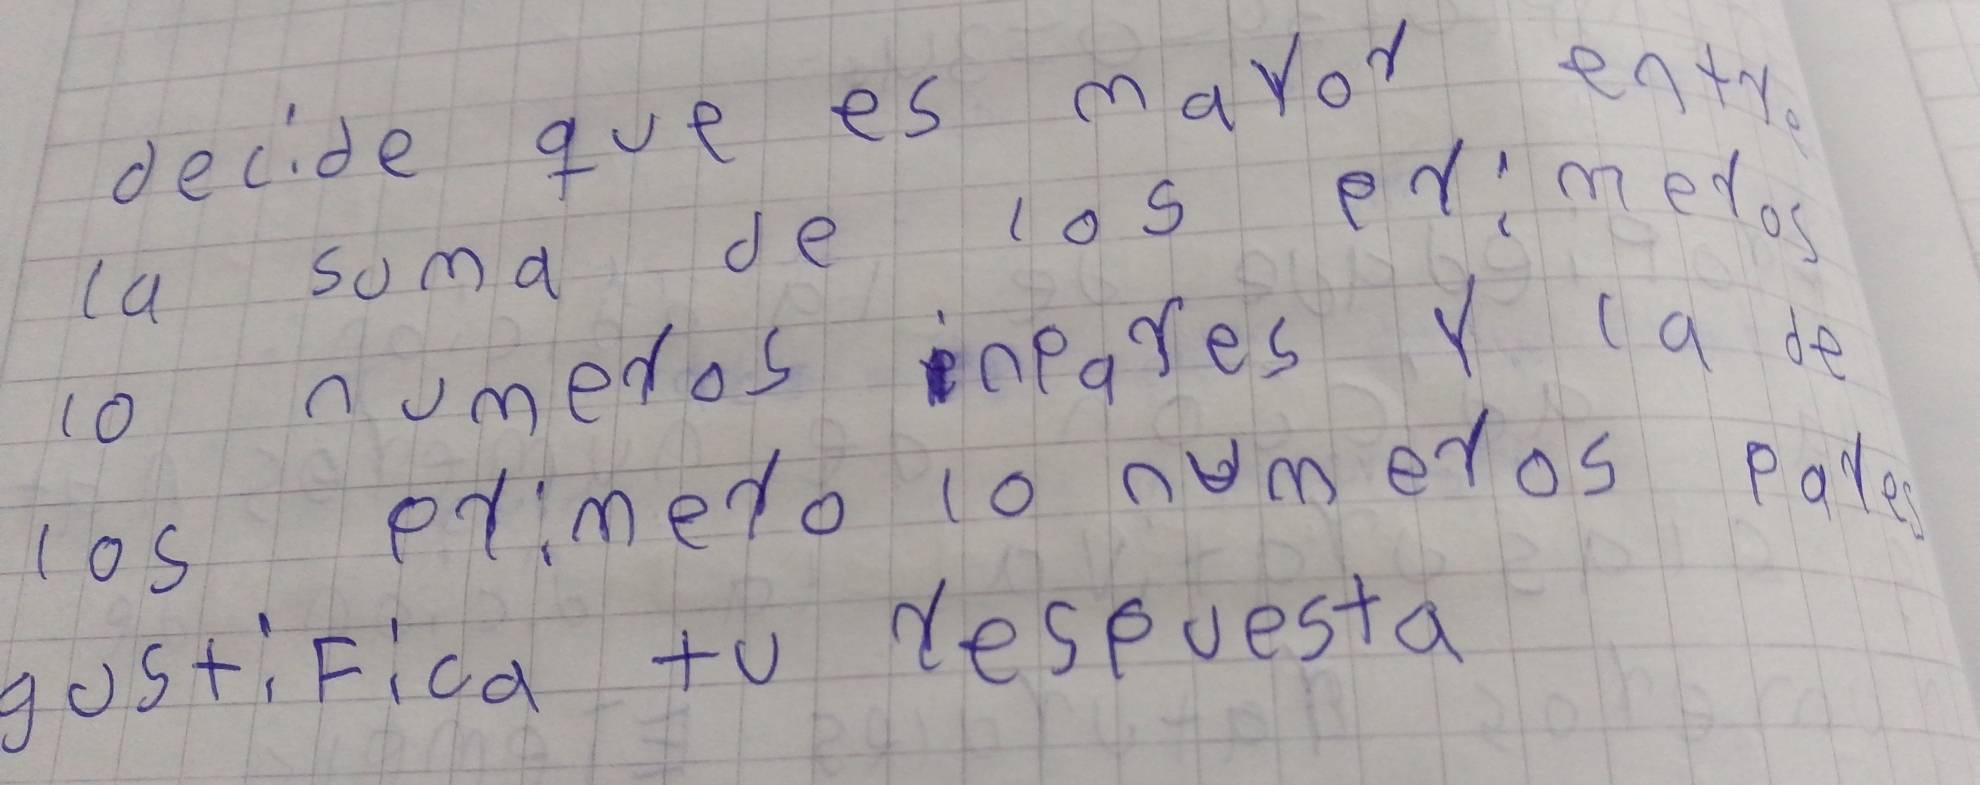 decide que es mayor entre
la suma de los primeros
10 numeros inpares y la de
los primero 10 numeros pares
gustifica tu respuesta